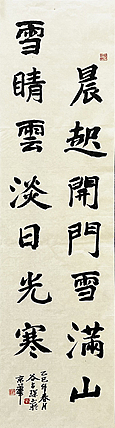 晨起開門雪滿山
雪晴雲淡日光寒
乙巳年春月
京華